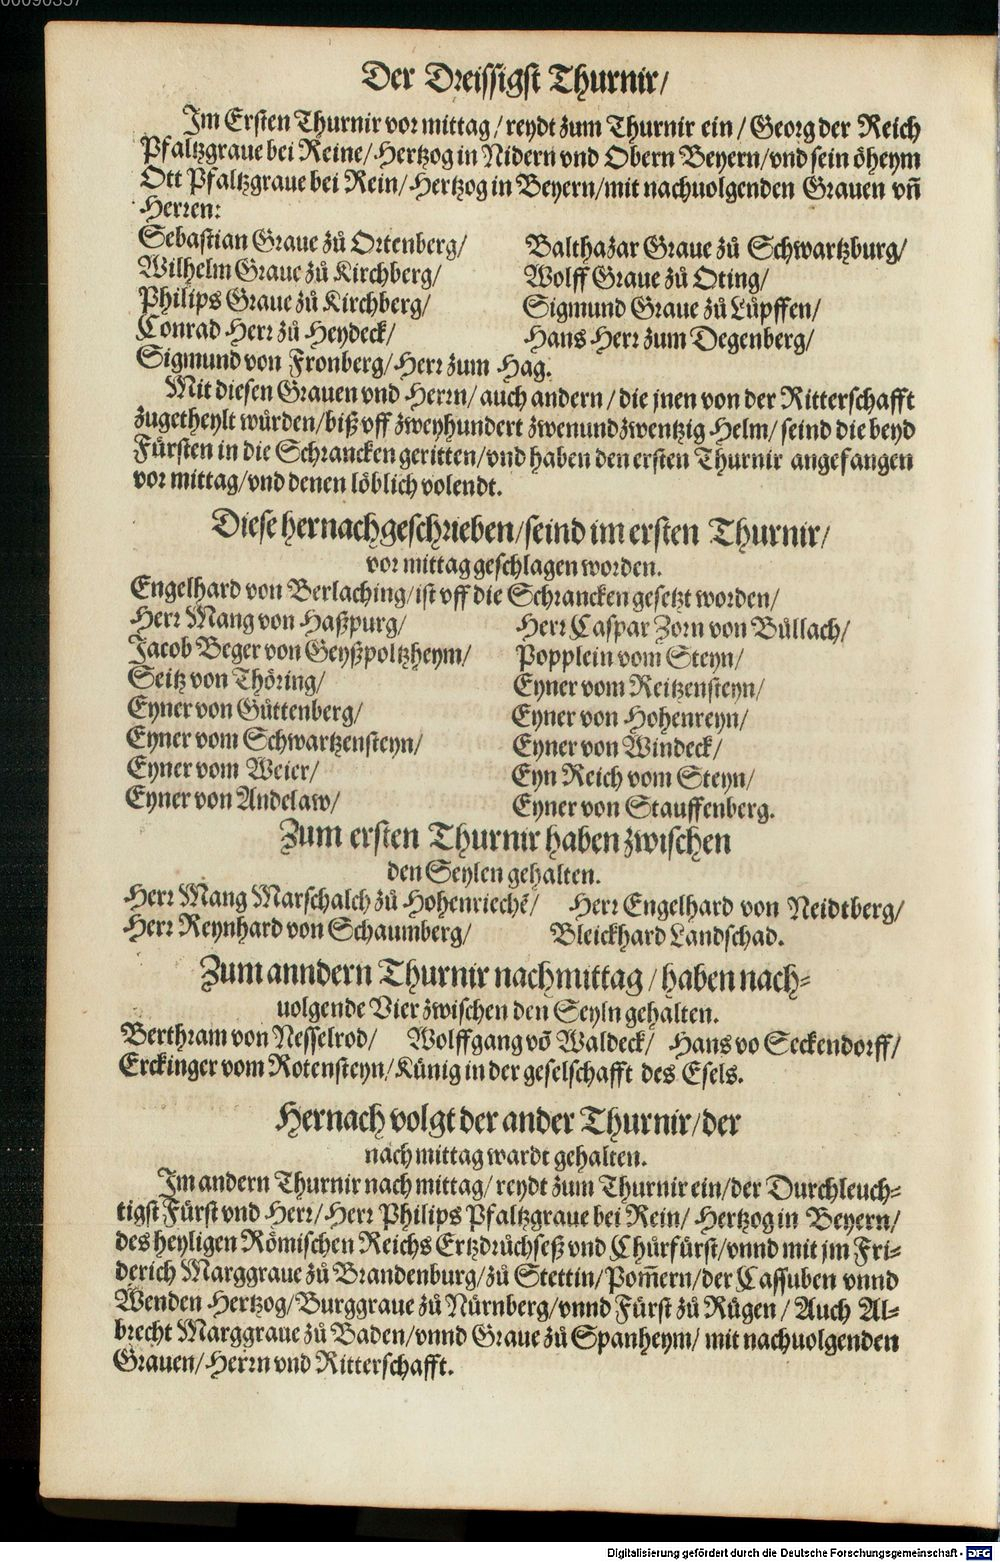 Der Dreissigst Thurnir/
Im Ersten Thurnir vor mittag/ reydt zum Thurnir ein/ Georg der Reich
Pfaltzgraue bei Reine/ Hertzog in Nidern vnd Obern Beyern/ vnd sein öheym
Ott Pfaltzgraue bei Rein/ Hertzog in Beyern/ mit nachuolgenden Grauen vñ
Herren:
Sebastian Graue zů Ortenberg/
Wilhelm Graue zů Kirchberg/
Philips Graue zů Kirchberg/
Conrad Herr zů Heydeck/
Sigmund von Fronberg/ Herr zum Hag.
Balthazar Graue zů Schwartzburg/
Wolff Graue zů Oting/
Sigmund Graue zů Lupffen/
Hans Herr zum Degenberg/
Mit diesen Grauen vnd Herrn/ auch andern/ die jnen von der Ritterschafft
zugetheylt würden/ biß vff zweyhundert zwenundzwentzig Helm/ seind die beyd
Fürsten in die Schrancken geritten/ vnd haben den ersten Thurnir angefangen
vor mittag/ vnd denen löblich volendt.
Diese hernachgeschrieben/ seind im ersten Thurnir/
vor mittag geschlagen worden.
Engelhard von Berlaching/ ist vff die Schrancken gesetzt worden/
Herr Mang von Haßpurg/
Jacob Beger von Geyßpoltzheym/
Seitz von Thöring/
Eyner von Güttenberg/
Eyner vom Schwartzensteyn/
Eyner vom Weier/
Eyner von Andelaw/
Herr Caspar Zorn von Büllach/
Popplein vom Steyn/
Eyner vom Reitzensteyn/
Eyner von Hohenreyn/
Eyner von Windeck/
Eyn Reich vom Steyn/
Eyner von Stauffenberg.
Zum ersten Thurnir haben zwischen
den Seylen gehalten.
Herr Mang Marschalch zů Hohenriechẽ/ Herr Engelhard von Neidtberg/
Herr Reynhard von Schaumberg/ Bleickhard Landschad.
Zum anndern Thurnir nachmittag/ haben nach⸗
uolgende Vier zwischen den Seyln gehalten.
Berthram von Nesselrod/ Wolffgang võ Waldeck/ Hans vo Seckendorff/
Erckinger vom Rotensteyn/ Künig in der geselschafft des Esels.
Hernach volgt der ander Thurnir/ der
nach mittag wardt gehalten.
Im andern Thurnir nach mittag/ reydt zum Thurnir ein/ der Durchleuch⸗
tigst Fürst vnd Herr/ Herr Philips Pfaltzgraue bei Rein/ Hertzog in Beyern/
des heyligen Römischen Reichs Ertzdrůchseß vnd Chürfürst/ vnnd mit jm Fri⸗
derich Marggraue zů Brandenburg/ zů Stettin/ Pom̃ern/ der Cassuben vnnd
Wenden Hertzog/ Burggraue zů Nürnberg/ vnnd Fürst zů Rügen/ Auch Al⸗
brecht Marggraue zů Baden/ vnnd Graue zů Spanheym/ mit nachuolgenden
Grauen/ Herrn vnd Ritterschafft.
Digitalisierung gefördert durch die Deutsche Forschungsgemeinschaft - DFG